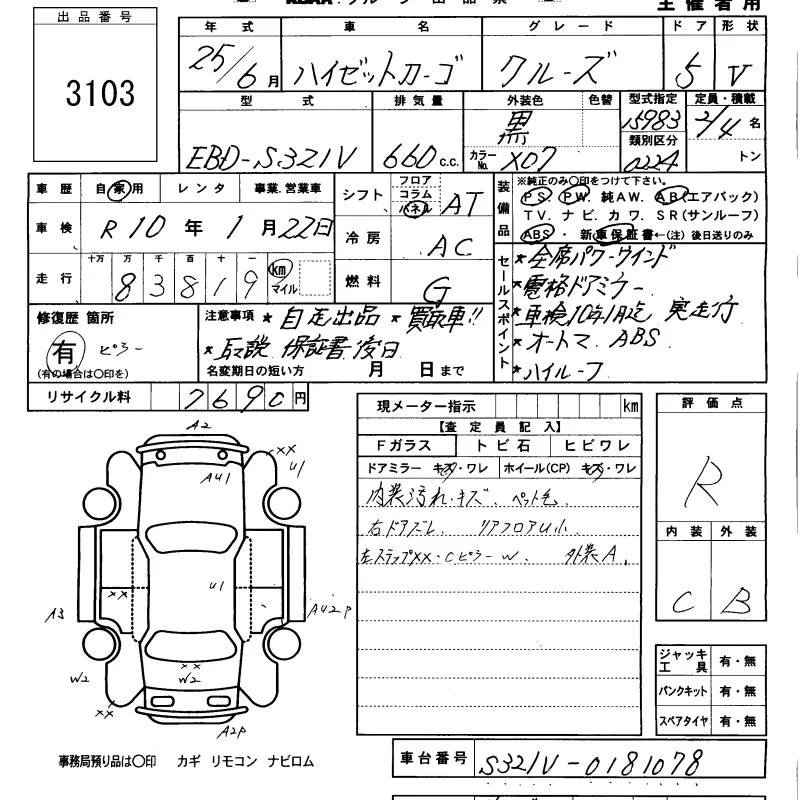 出品番号
3103
主催者用
年式 車名 グレード ドア 形状
25/6月 ハイゼットカーゴ クルーズ 5 V
型式 排気量 外装色 色替 型式指定 定員・積載
EBD-S321V 660c.c. 黒 15983 2/4名
カラーNo. X07 類別区分 0224 トン
車歴 自家用 レンタ 事業.営業車
シフト フロア コラム パネル AT
車検 R10年1月22日
冷房 AC
走行 十万 万 千 百 十 一
83819 km マイル
燃料 G
装備品
※純正のみ○印をつけて下さい。
PS. PW. 純AW. AB(エアバック)
TV. ナビ. カワ. SR(サンルーフ)
ABS・新車保証書←(注)後日送りのみ
セールスポイント
★全席パワーウインド
★電格ドアミラー
★車検10年1月迄 実走行
★オートマ ABS
★ハイルーフ
修復歴 箇所
有 ピラー
(有の場合は○印を)
注意事項 ★自走出品 ★買取車!!
★取説 保証書 後日
名変期日の短い方 月 日まで
リサイクル料 7690円
現メーター指示 km
【査定員記入】
Fガラス トビ石 ヒビワレ
ドアミラー キズ・ワレ ホイール(CP) キズ・ワレ
内装汚れ・キズ. ペット毛
右ドアズレ リアフロアU小
左ステップXX・Cピラー W. 外装A.
評価点
R
内装 外装
C B
A2
XX
U1
AU1
U1
XX
A3
AU2P
XX
W2
W2
XX
A2P
ジャッキ工具 有・無
パンクキット 有・無
スペアタイヤ 有・無
事務局預り品は○印 カギ リモコン ナビロム
車台番号 S321V-0181078